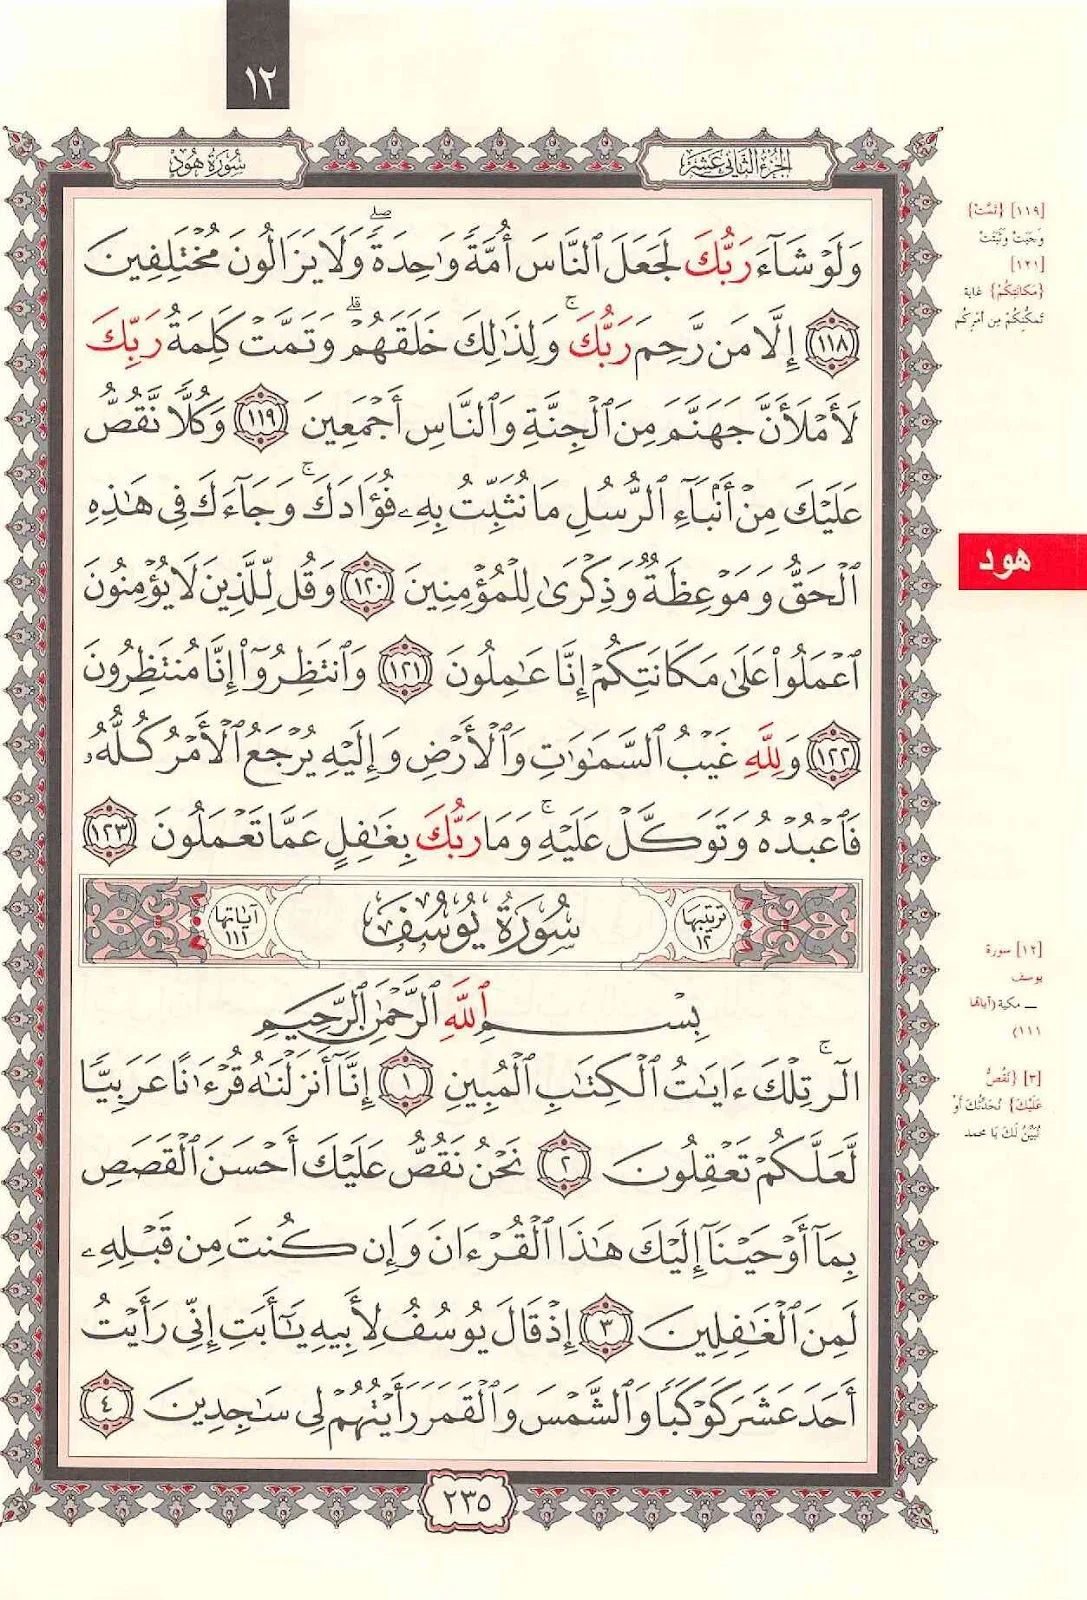 ١٢
الجزء الثاني عشر
سورة هود
وَلَوْ شَآءَ رَبُّكَ لَجَعَلَ ٱلنَّاسَ أُمَّةً وَٰحِدَةً ۖ وَلَا يَزَالُونَ مُخْتَلِفِينَ
﴿١١٨﴾ إِلَّا مَن رَّحِمَ رَبُّكَ ۚ وَلِذَٰلِكَ خَلَقَهُمْ ۗ وَتَمَّتْ كَلِمَةُ رَبِّكَ
لَأَمْلَأَنَّ جَهَنَّمَ مِنَ ٱلْجِنَّةِ وَٱلنَّاسِ أَجْمَعِينَ ﴿١١٩﴾ وَكُلًّا نَّقُصُّ
عَلَيْكَ مِنْ أَنۢبَآءِ ٱلرُّسُلِ مَا نُثَبِّتُ بِهِۦ فُؤَادَكَ ۚ وَجَآءَكَ فِى هَٰذِهِ
ٱلْحَقُّ وَمَوْعِظَةٌ وَذِكْرَىٰ لِلْمُؤْمِنِينَ ﴿١٢٠﴾ وَقُل لِّلَّذِينَ لَا يُؤْمِنُونَ
ٱعْمَلُوا۟ عَلَىٰ مَكَانَتِكُمْ إِنَّا عَٰمِلُونَ ﴿١٢١﴾ وَٱنتَظِرُوٓا۟ إِنَّا مُنتَظِرُونَ
﴿١٢٢﴾ وَلِلَّهِ غَيْبُ ٱلسَّمَٰوَٰتِ وَٱلْأَرْضِ وَإِلَيْهِ يُرْجَعُ ٱلْأَمْرُ كُلُّهُۥ
فَٱعْبُدْهُ وَتَوَكَّلْ عَلَيْهِ ۚ وَمَا رَبُّكَ بِغَٰفِلٍ عَمَّا تَعْمَلُونَ ﴿١٢٣﴾
ترتيبها ١٢
سُورَةُ يُوسُفَ
آياتها ١١١
بِسْمِ ٱللَّهِ ٱلرَّحْمَٰنِ ٱلرَّحِيمِ
الٓر ۚ تِلْكَ ءَايَٰتُ ٱلْكِتَٰبِ ٱلْمُبِينِ ﴿١﴾ إِنَّآ أَنزَلْنَٰهُ قُرْءَٰنًا عَرَبِيًّا
لَّعَلَّكُمْ تَعْقِلُونَ ﴿٢﴾ نَحْنُ نَقُصُّ عَلَيْكَ أَحْسَنَ ٱلْقَصَصِ
بِمَآ أَوْحَيْنَآ إِلَيْكَ هَٰذَا ٱلْقُرْءَانَ وَإِن كُنتَ مِن قَبْلِهِۦ
لَمِنَ ٱلْغَٰفِلِينَ ﴿٣﴾ إِذْ قَالَ يُوسُفُ لِأَبِيهِ يَٰٓأَبَتِ إِنِّى رَأَيْتُ
أَحَدَ عَشَرَ كَوْكَبًا وَٱلشَّمْسَ وَٱلْقَمَرَ رَأَيْتُهُمْ لِى سَٰجِدِينَ ﴿٤﴾
٢٣٥
[١١٩] {تَمَّتْ}
وَجَبَتْ وَثَبَتَتْ
[١٢١]
{مَكَانَتِكُمْ} غاية
تَمَكُّنِكُمْ مِن أَمْرِكُم
هود
[١٢] سورة
يوسف
ــ مكية (آياتها
١١١)
[٣] {نَقُصُّ
عَلَيْكَ} نُحَدِّثُكَ أَوْ
نُبَيِّنُ لَكَ يَا محمد